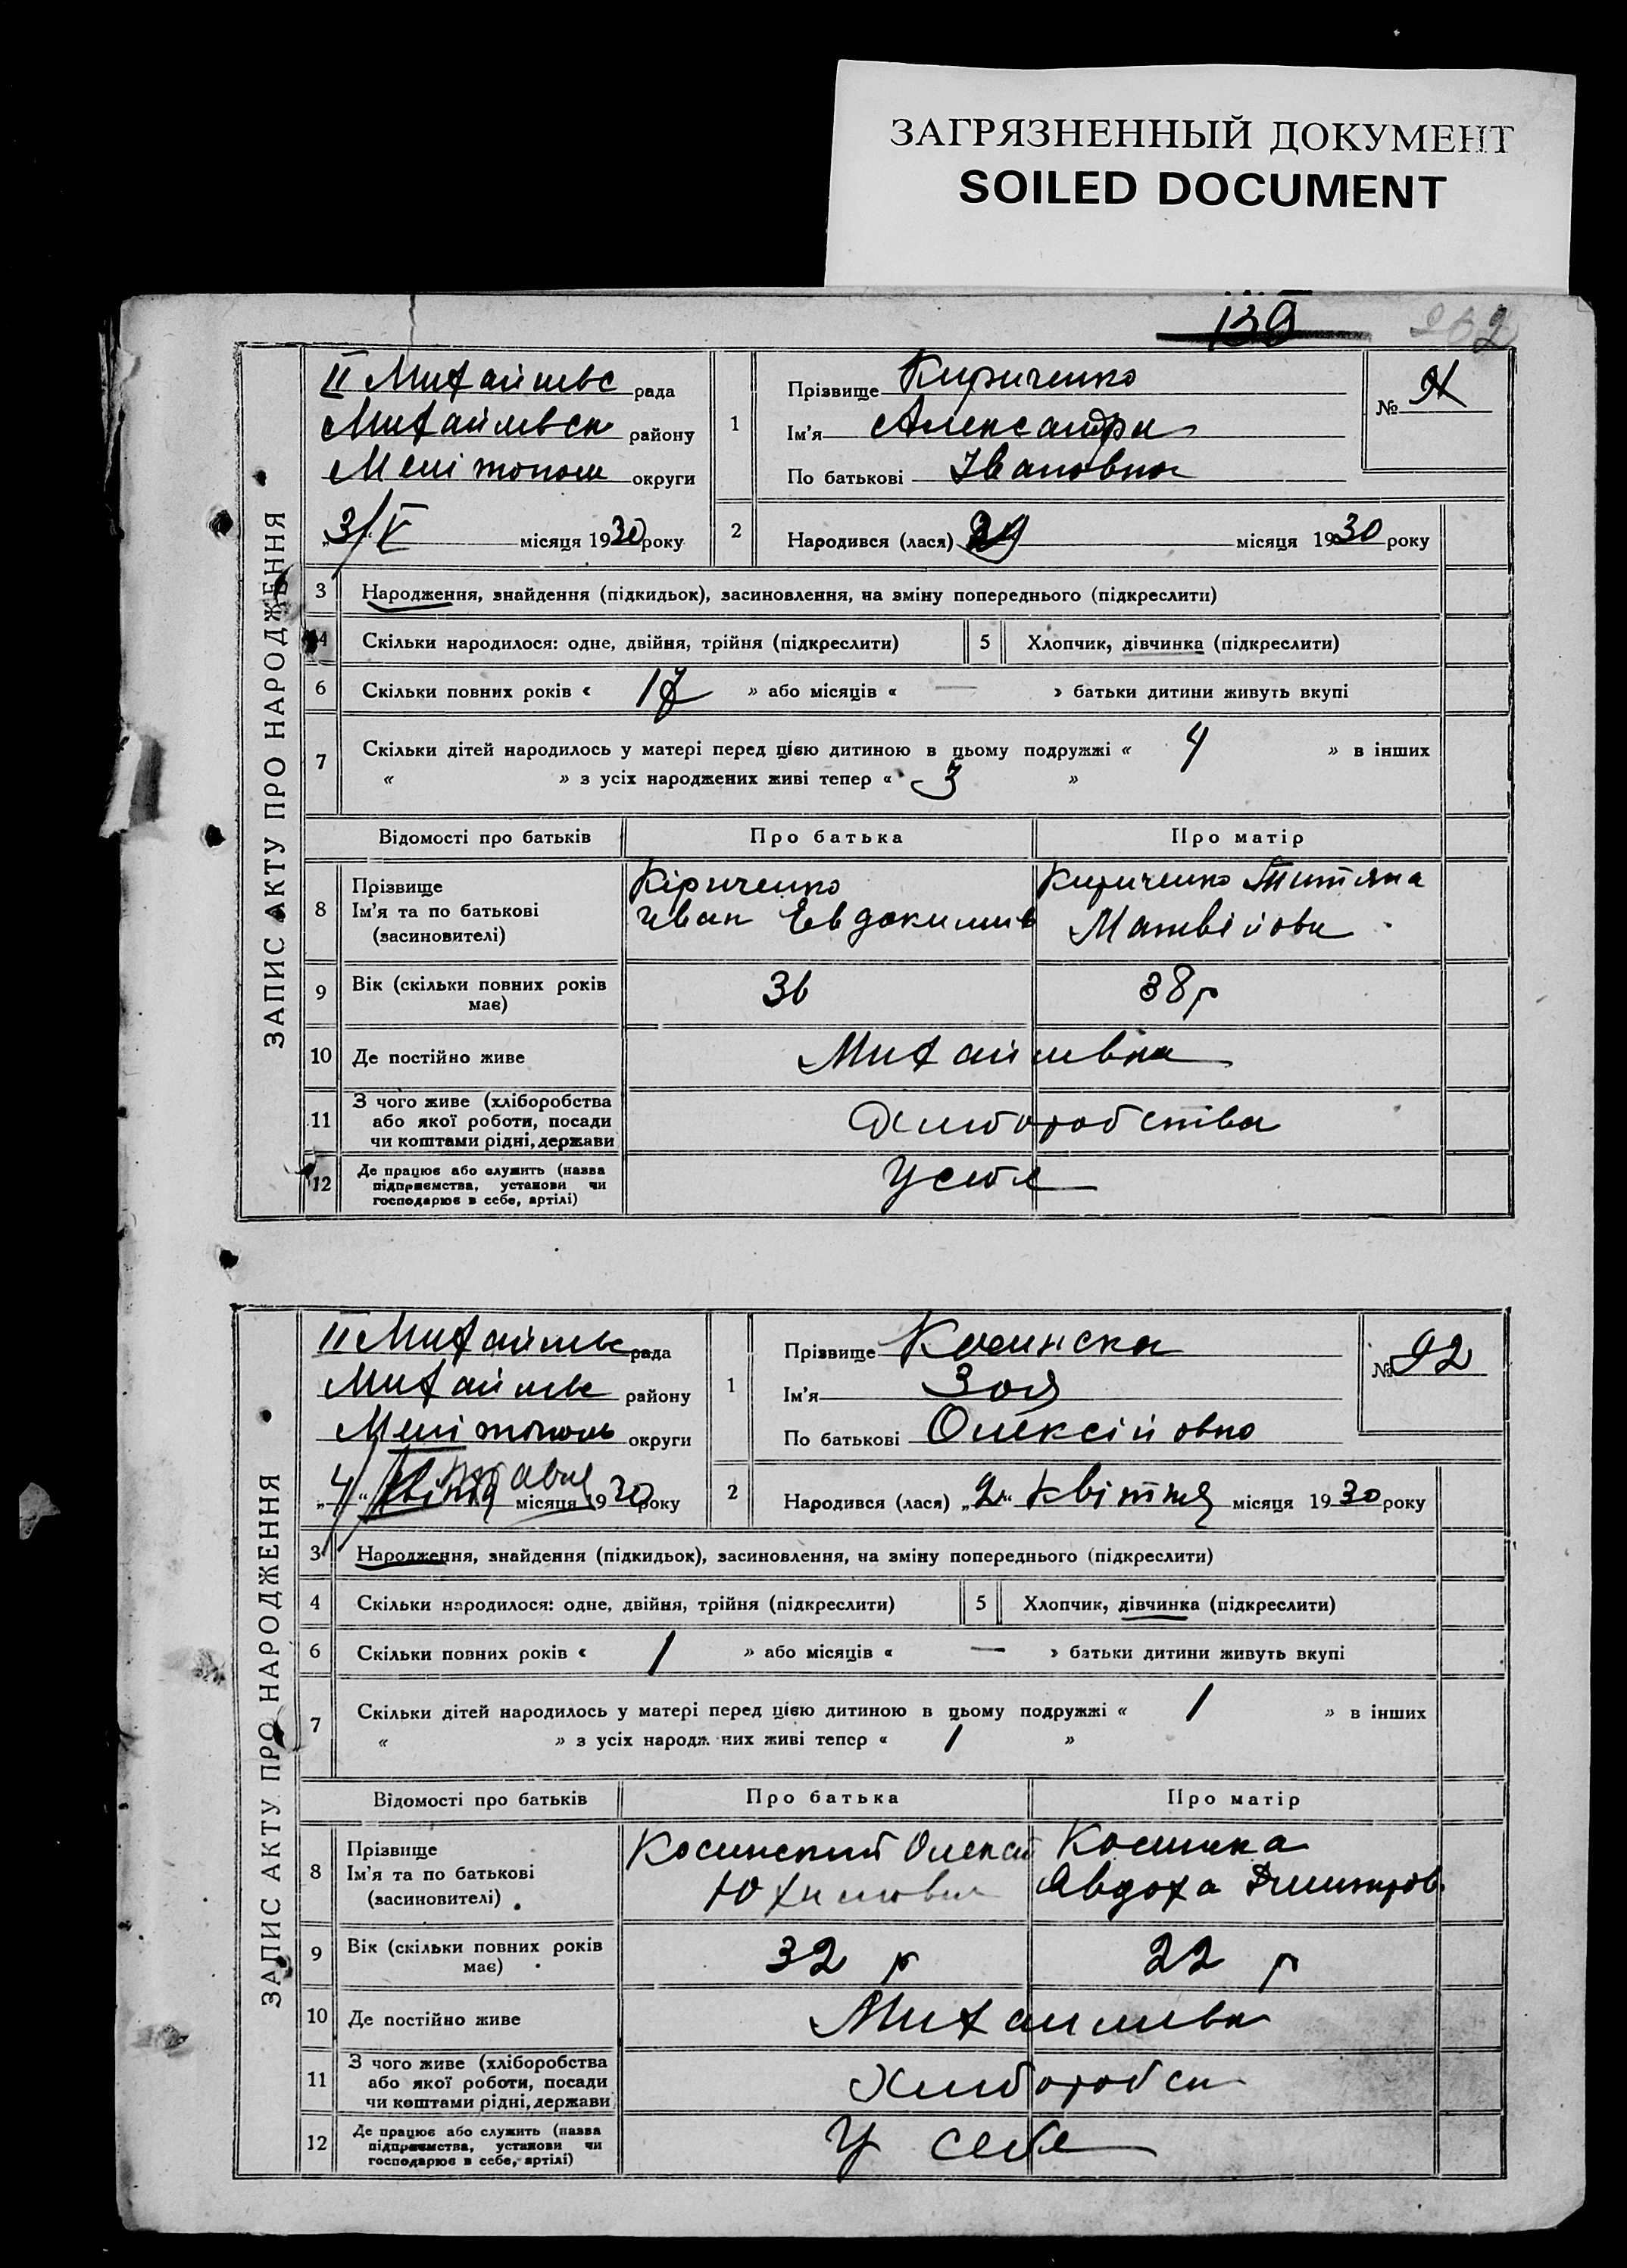 ЗАГРЯЗНЕННЫЙ ДОКУМЕНТ
SOILED DOCUMENT
139
ЗАПИС АКТУ ПРО НАРОДЖЕННЯ
II Михайлівс рада
Михайлівск району
Мелітополь округи
3/V місяця 1930 року
1 Прізвище Кириченко
Ім'я Александра
По батькові Івановна
№
2 Народився (лася) місяця 1930 року
3 Народження, знайдення (підкидьок), засиновлення, на зміну попереднього (підкреслити)
4 Скільки народилося: одне, двійня, трійня (підкреслити) 5 Хлопчик, дівчинка (підкреслити)
6 Скільки повних років « 17 » або місяців « — » батьки дитини живуть вкупі
7 Скільки дітей народилось у матері перед цією дитиною в цьому подружжі « 4 » в інших
« » з усіх народжених живі тепер « 3 »
Відомості про батьків Про батька Про матір
8 Прізвище Ім'я та по батькові (засновителі)
Кіриченко Кириченко Титяна
Иван Евдокимив Матвійовн
9 Вік (скільки повних років має) 36 38 р
10 Де постійно живе Михайлівка
11 З чого живе (хліборобства або якої роботи, посади чи коштами рідні, держави Хлиборобства
12 Де працює або служить (назва підприємства, установи чи господарює в себе, артілі) У себе
ЗАПИС АКТУ ПРО НАРОДЖЕННЯ
II Михайлівс рада
Михайлівс району
Мелітополь округи
„4“ травня місяця 1930 року
1 Прізвище Косинска
Ім'я Зоя
По батькові Олексійовна
№ 92
2 Народився (лася) „2“ квітня місяця 1930 року
3 Народження, знайдення (підкидьок), засиновлення, на зміну попереднього (підкреслити)
4 Скільки народилося: одне, двійня, трійня (підкреслити) 5 Хлопчик, дівчинка (підкреслити)
6 Скільки повних років « 1 » або місяців « — » батьки дитини живуть вкупі
7 Скільки дітей народилось у матері перед цією дитиною в цьому подружжі « 1 » в інших
« » з усіх народжених живі тепер « 1 »
Відомості про батьків Про батька Про матір
8 Прізвище Ім'я та по батькові (засиновителі)
Косинский Олексій Косинка
Юхимович Явдоха Дмитров
9 Вік (скільки повних років має) 32 р 22 р
10 Де постійно живе Михаиливка
11 З чого живе (хліборобства або якої роботи, посади чи коштами рідні, держави Хлиборобси
12 Де працює або служить (назва підприємства, установи чи господарює в себе, артілі) У себе